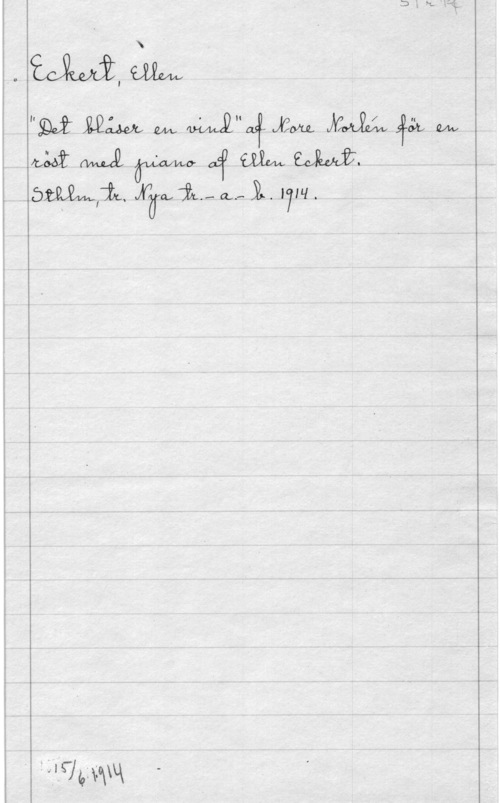 Eckert, Ellen
"Det blåser en vind" af Nore Norlén för en
röst med piano af Ellen Eckert.
Sthlm, tr. Nya tr.-a.-b. 1914.
15/6 1914